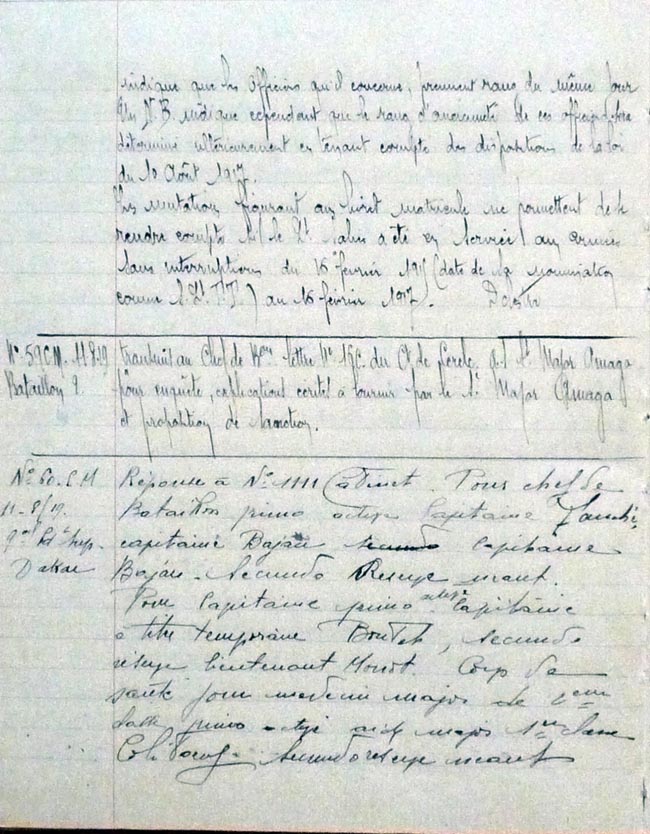 indique que les Officiers qu'il concerne, prennent rang du même jour
Un N.B. indique cependant que le rang d'ancienneté de ces officiers sera
déterminé ultérieurement en tenant compte des dispositions de la loi
du 10 Août 1917
Les mutations figurant au livret matricule ne permettent de se
rendre compte si le Lt a été en Service aux armées
sans interruptions du 16 février 1915 (date de sa nomination
comme S.Lt T.T.) au 16 février 1917.
N° 59 CM. 11.8.19 transmis au Chef de Bon lettre N° 15C. du Ct de Cercle, a.s. St Major Amaga
Bataillon 2. pour enquête, explications écrites à fournir par le St Major Amaga
et proposition de sanction.
N° 60. C.M. Réponse à N° 1111 Cabinet. Pour chef de
11-8/19. Bataillon primo active Capitaine
capitaine Bajau secundo Capitaine
Dakar Bajau. Secundo Reserve néant.
Pour Capitaine primo active Capitaine
à titre temporaire, secundo
réserve lieutenant Monot. Corps de
santé pour médecin major de 2eme
classe primo active aide major 1ere classe
secundo réserve néant